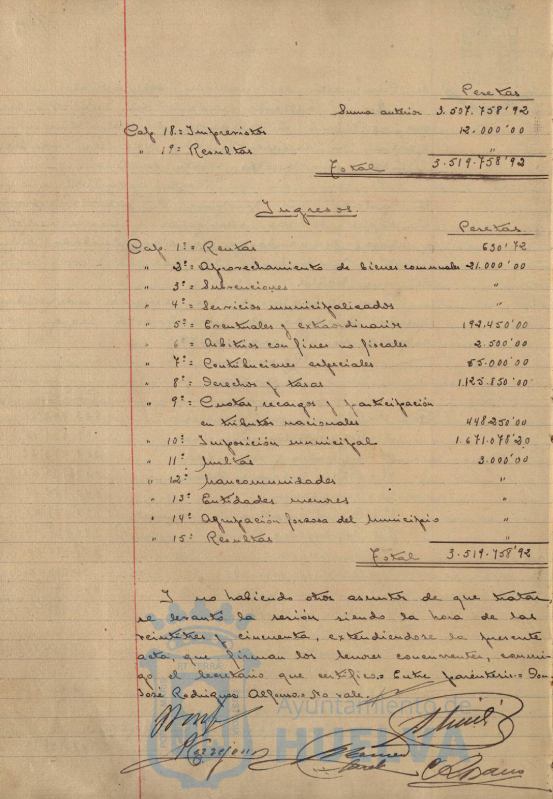 Pesetas
Suma anterior 3.507.758'92
Cap. 18.= Imprevistos 12.000'00
" 19= Resultas "
Total 3.519.758'92
Ingresos.
Pesetas
Cap. 1º= Rentas 630'72
" 2º= Aprovechamiento de bienes comunales 21.000'00
" 3º= Subvenciones "
" 4º= Servicios municipalizados "
" 5º= Eventuales y extraordinarios 192.450'00
" 6º= Arbitrios con fines no fiscales 2.500'00
" 7º= Contribuciones especiales 55.000'00
" 8º= Derechos y tasas 1.125.850'00
" 9º= Cuotas, recargos y participación
en tributos nacionales 448.250'00
" 10º= Imposición municipal 1.671.078'20
" 11º= Multas 3.000'00
" 12º= Mancomunidades "
" 13º= Entidades menores "
" 14º= Agrupación forzosa del Municipio "
" 15º= Resultas "
Total 3.519.758'92
Y no habiendo otros asuntos de que tratar,
se levantó la sesión siendo la hora de las
veintitres y cincuenta, extendiendose la presente
acta, que firman los señores concurrentes, conmi-
go el Secretario que certifico.= Entre paréntesis= Don
José Rodriguez Alfonso= No vale.
Ayuntamiento de
HUELVA